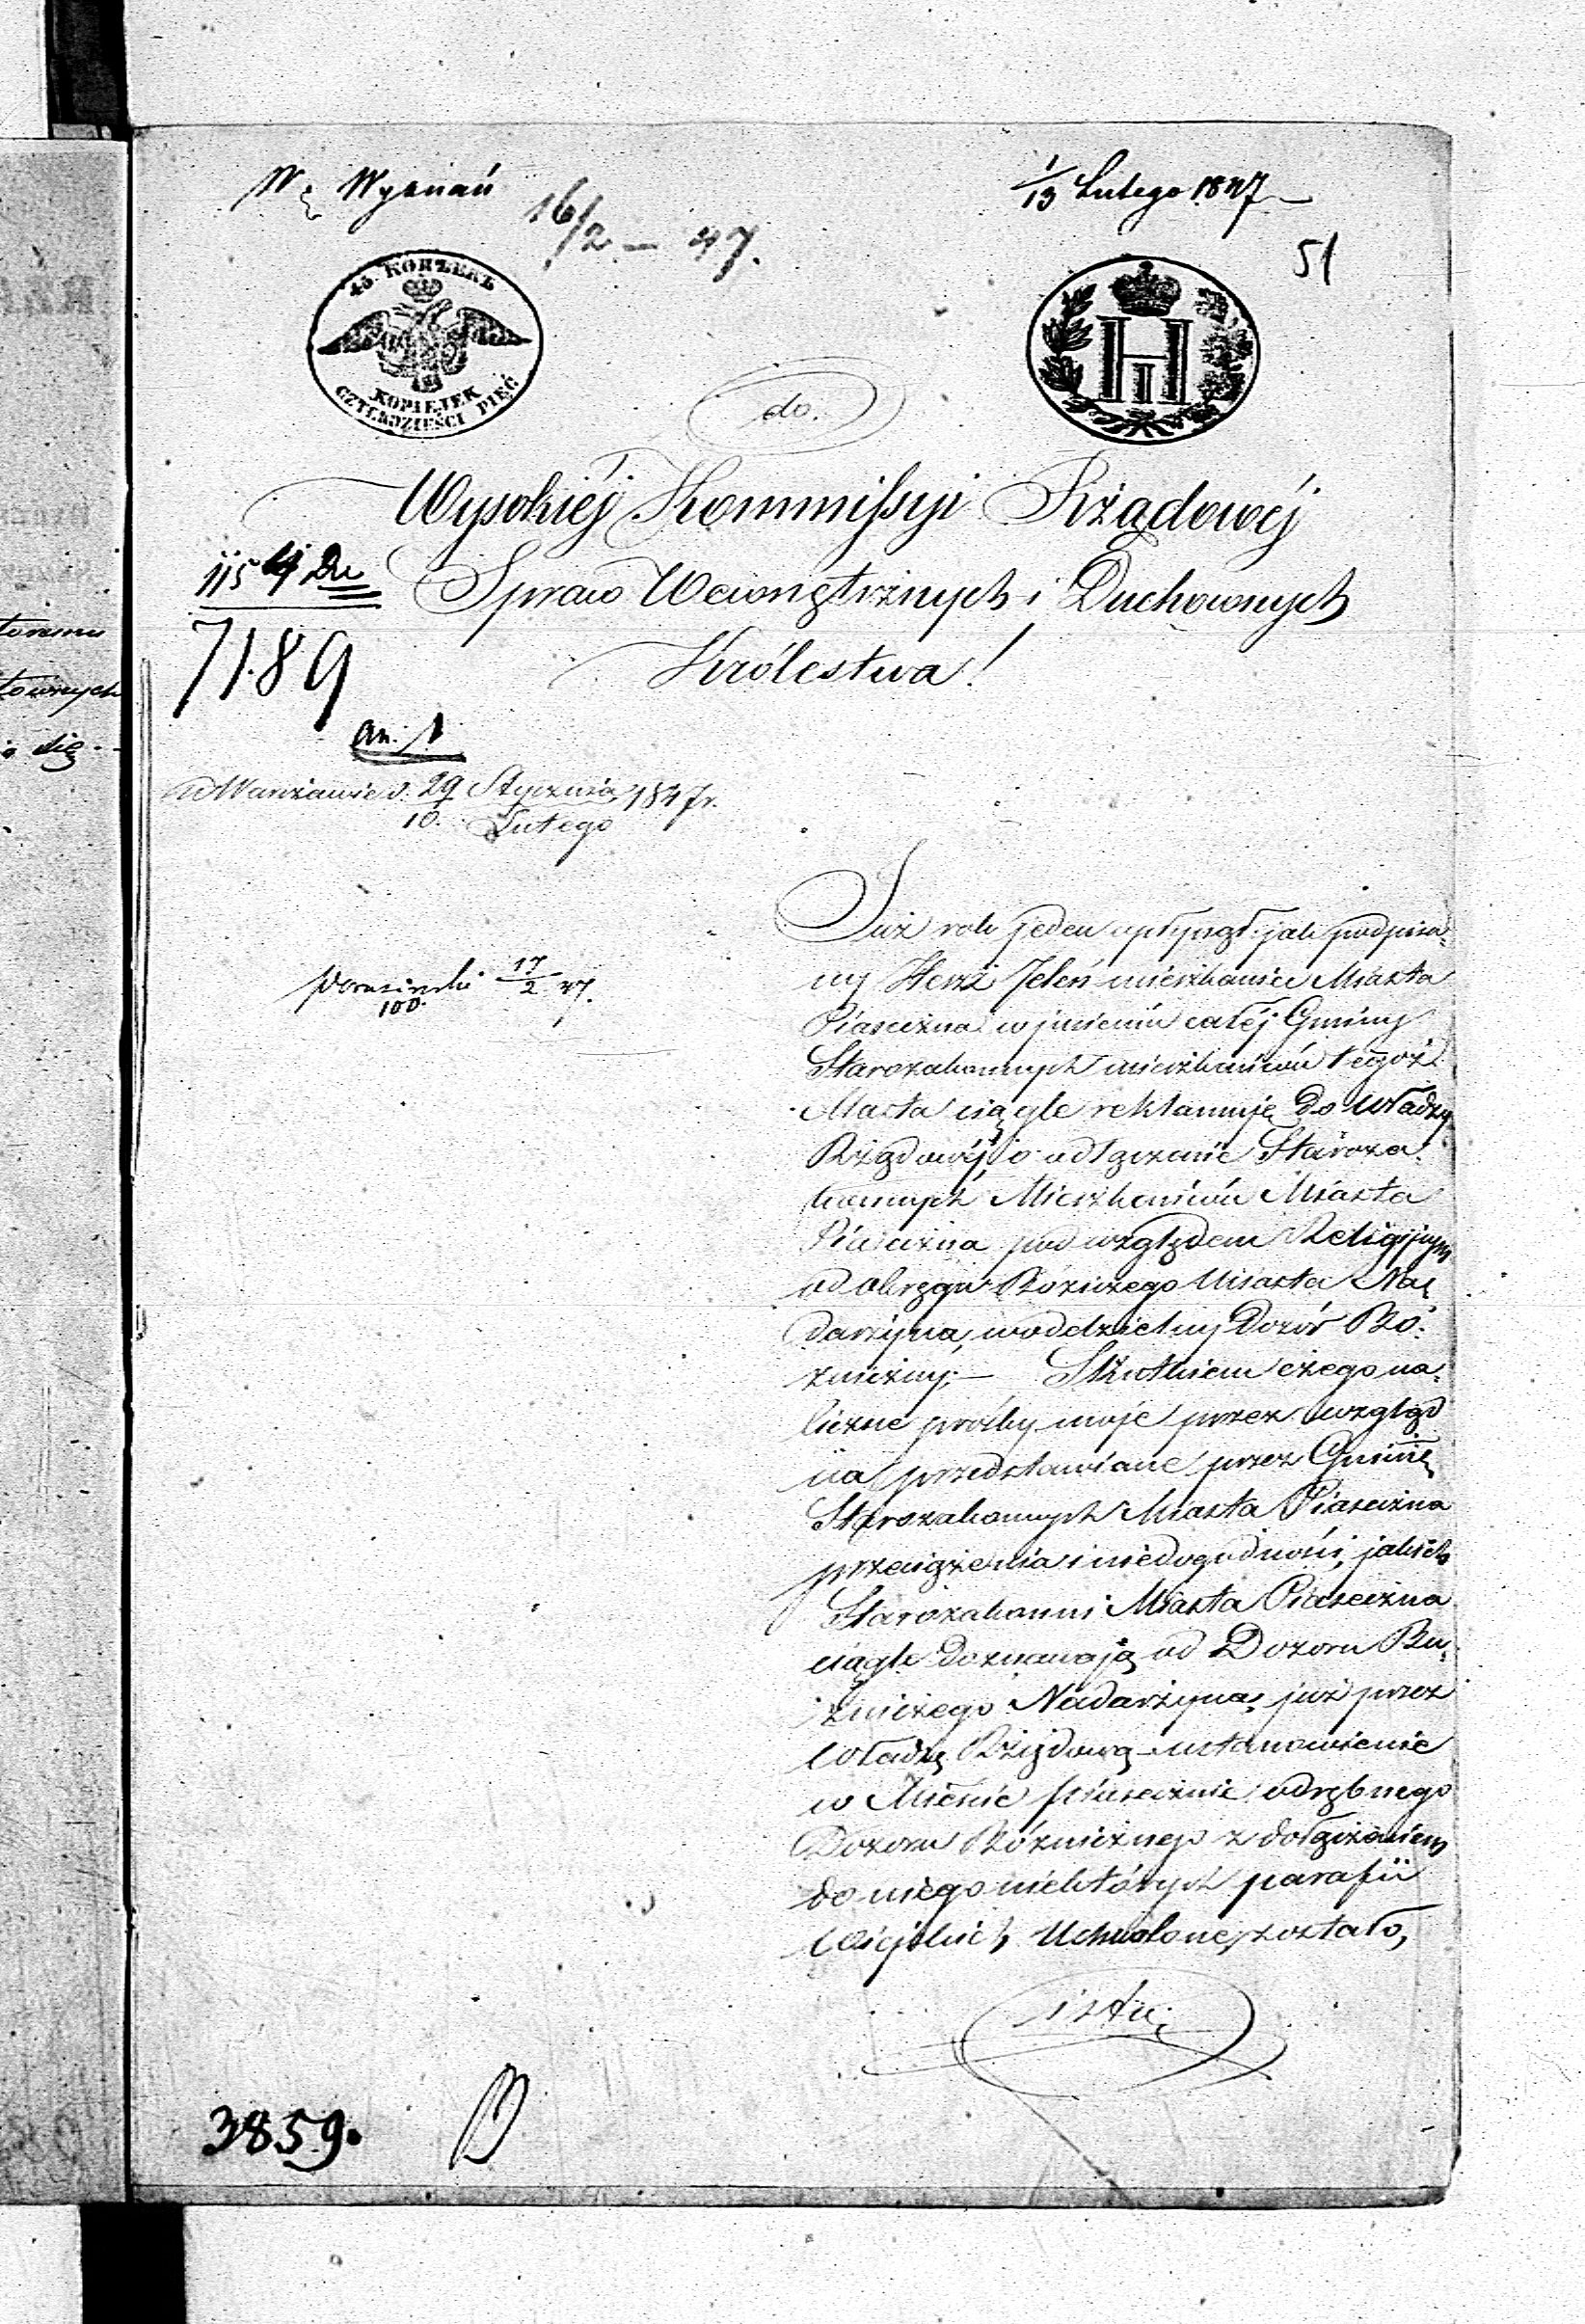 Wyznań
16/2 – 47.
1/13 Lutego 1847
51
45. КОПѢЕКЪ
KOPIEJEK
CZTERDZIEŚCI PIĘĆ
H
II
do.
Wysokiéj Kommissyi Rżądowéj
Spraw Wewnętrznych i Duchownych
Królestwa!
7189
an. 1
w Warszawie d. 29 Stycznia 1847r.
10. Lutego
17/2 47.
100.
Już rok jeden upłynął jak podpisa-
ny Herz Jeleń mieszkaniec Miasta
Piaseczna w imieniu całéj Gminy
Starozakonnych mieszkańców tegoż
Miasta ciągle reklamuję do Władzy
Rżądowéj, o odłączenie Staroza-
konnych Mieszkańców Miasta
Piaseczna pod względem Religijnym
od okręgu Bóźniczego Miasta Na-
darżyna, w oddzielny Dozór Bó-
żniczny; – Skutkiem czego na-
liczne prośby moje przez wzgląd
na przedstawiane przez Gminę
Starozakonnych Miasta Piaseczna
przeciążenia i niedogodności, jakich
Starozakonni Miasta Piaseczna
ciągle doznawają od Dozoru Bu-
żniczego Nadarżyna, już przez
Władzę Rżądową ustanowienie
w Mieście Piasecznie odrębnego
Dozoru Bóżnicznego z dołączeniem
do niego niektórych parafii
Wiejskich Uchwolone zostało,
3859.